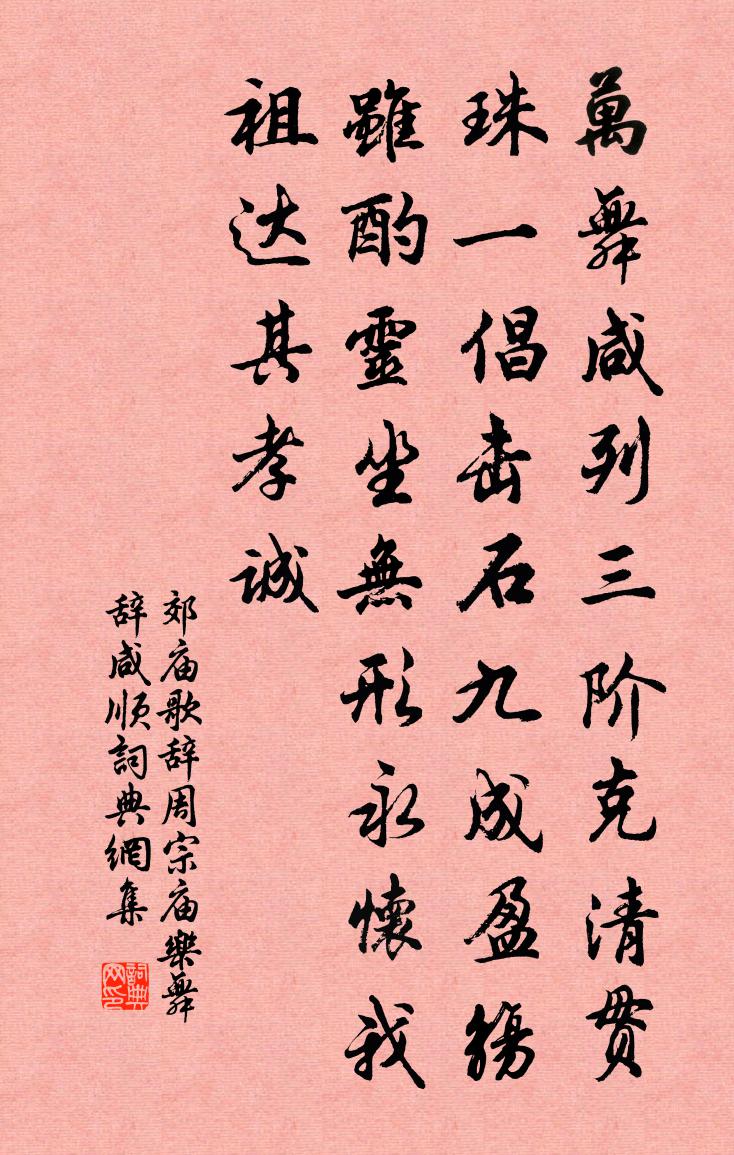 萬舞咸列三阶克清贯
珠一倡击石九成盈觞
雖酌靈坐無形永懷我
祖达其孝诚
郊庙歌辞周宗庙樂舞
辞咸顺詞典網集
詞典网印